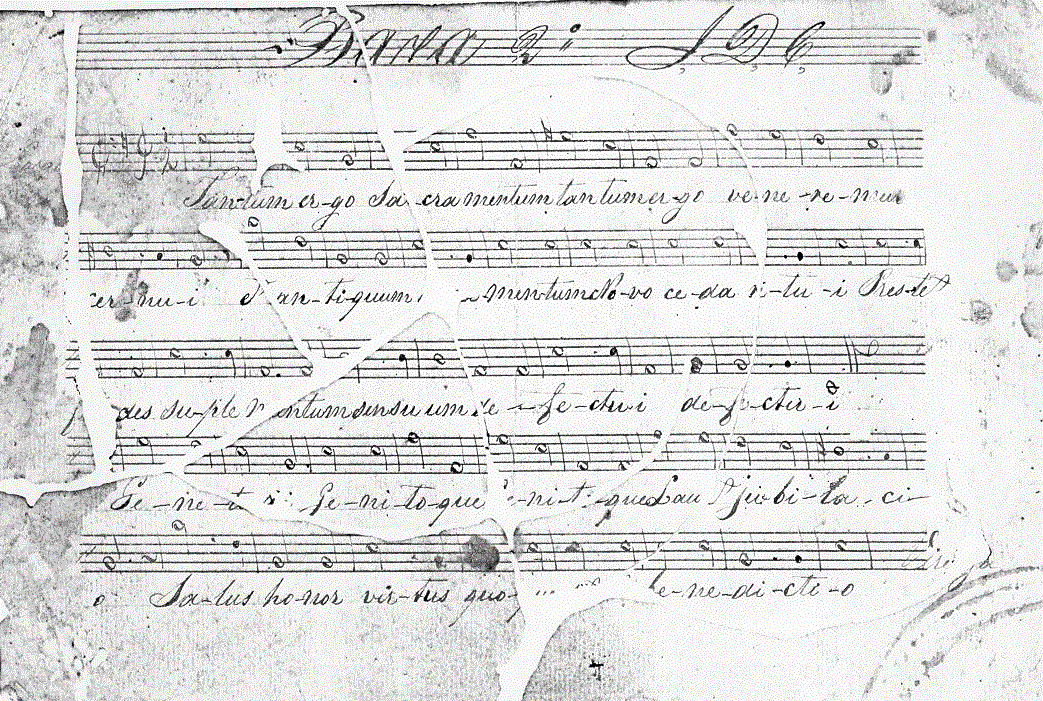 2º J. D. C.
Tan-tum er-go Sa-cramentum tantum er-go ve-ne-re-mur
cer-nu-i an-ti-quum mentum No-vo ce-da ri-tu-i Pres-te
des su-ple mentum sensuum de-fe-ctu-i de-fe-ctu-i
Ge-ne-ti ri Ge-ni-to que Ge-ni-to-que Lau ju-bi-la-ci-
o Sa-lus ho-nor vir-tus quo- be-ne-di-cti-o